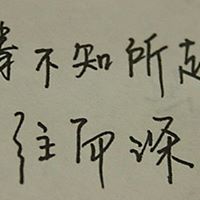 不知所起
往而深